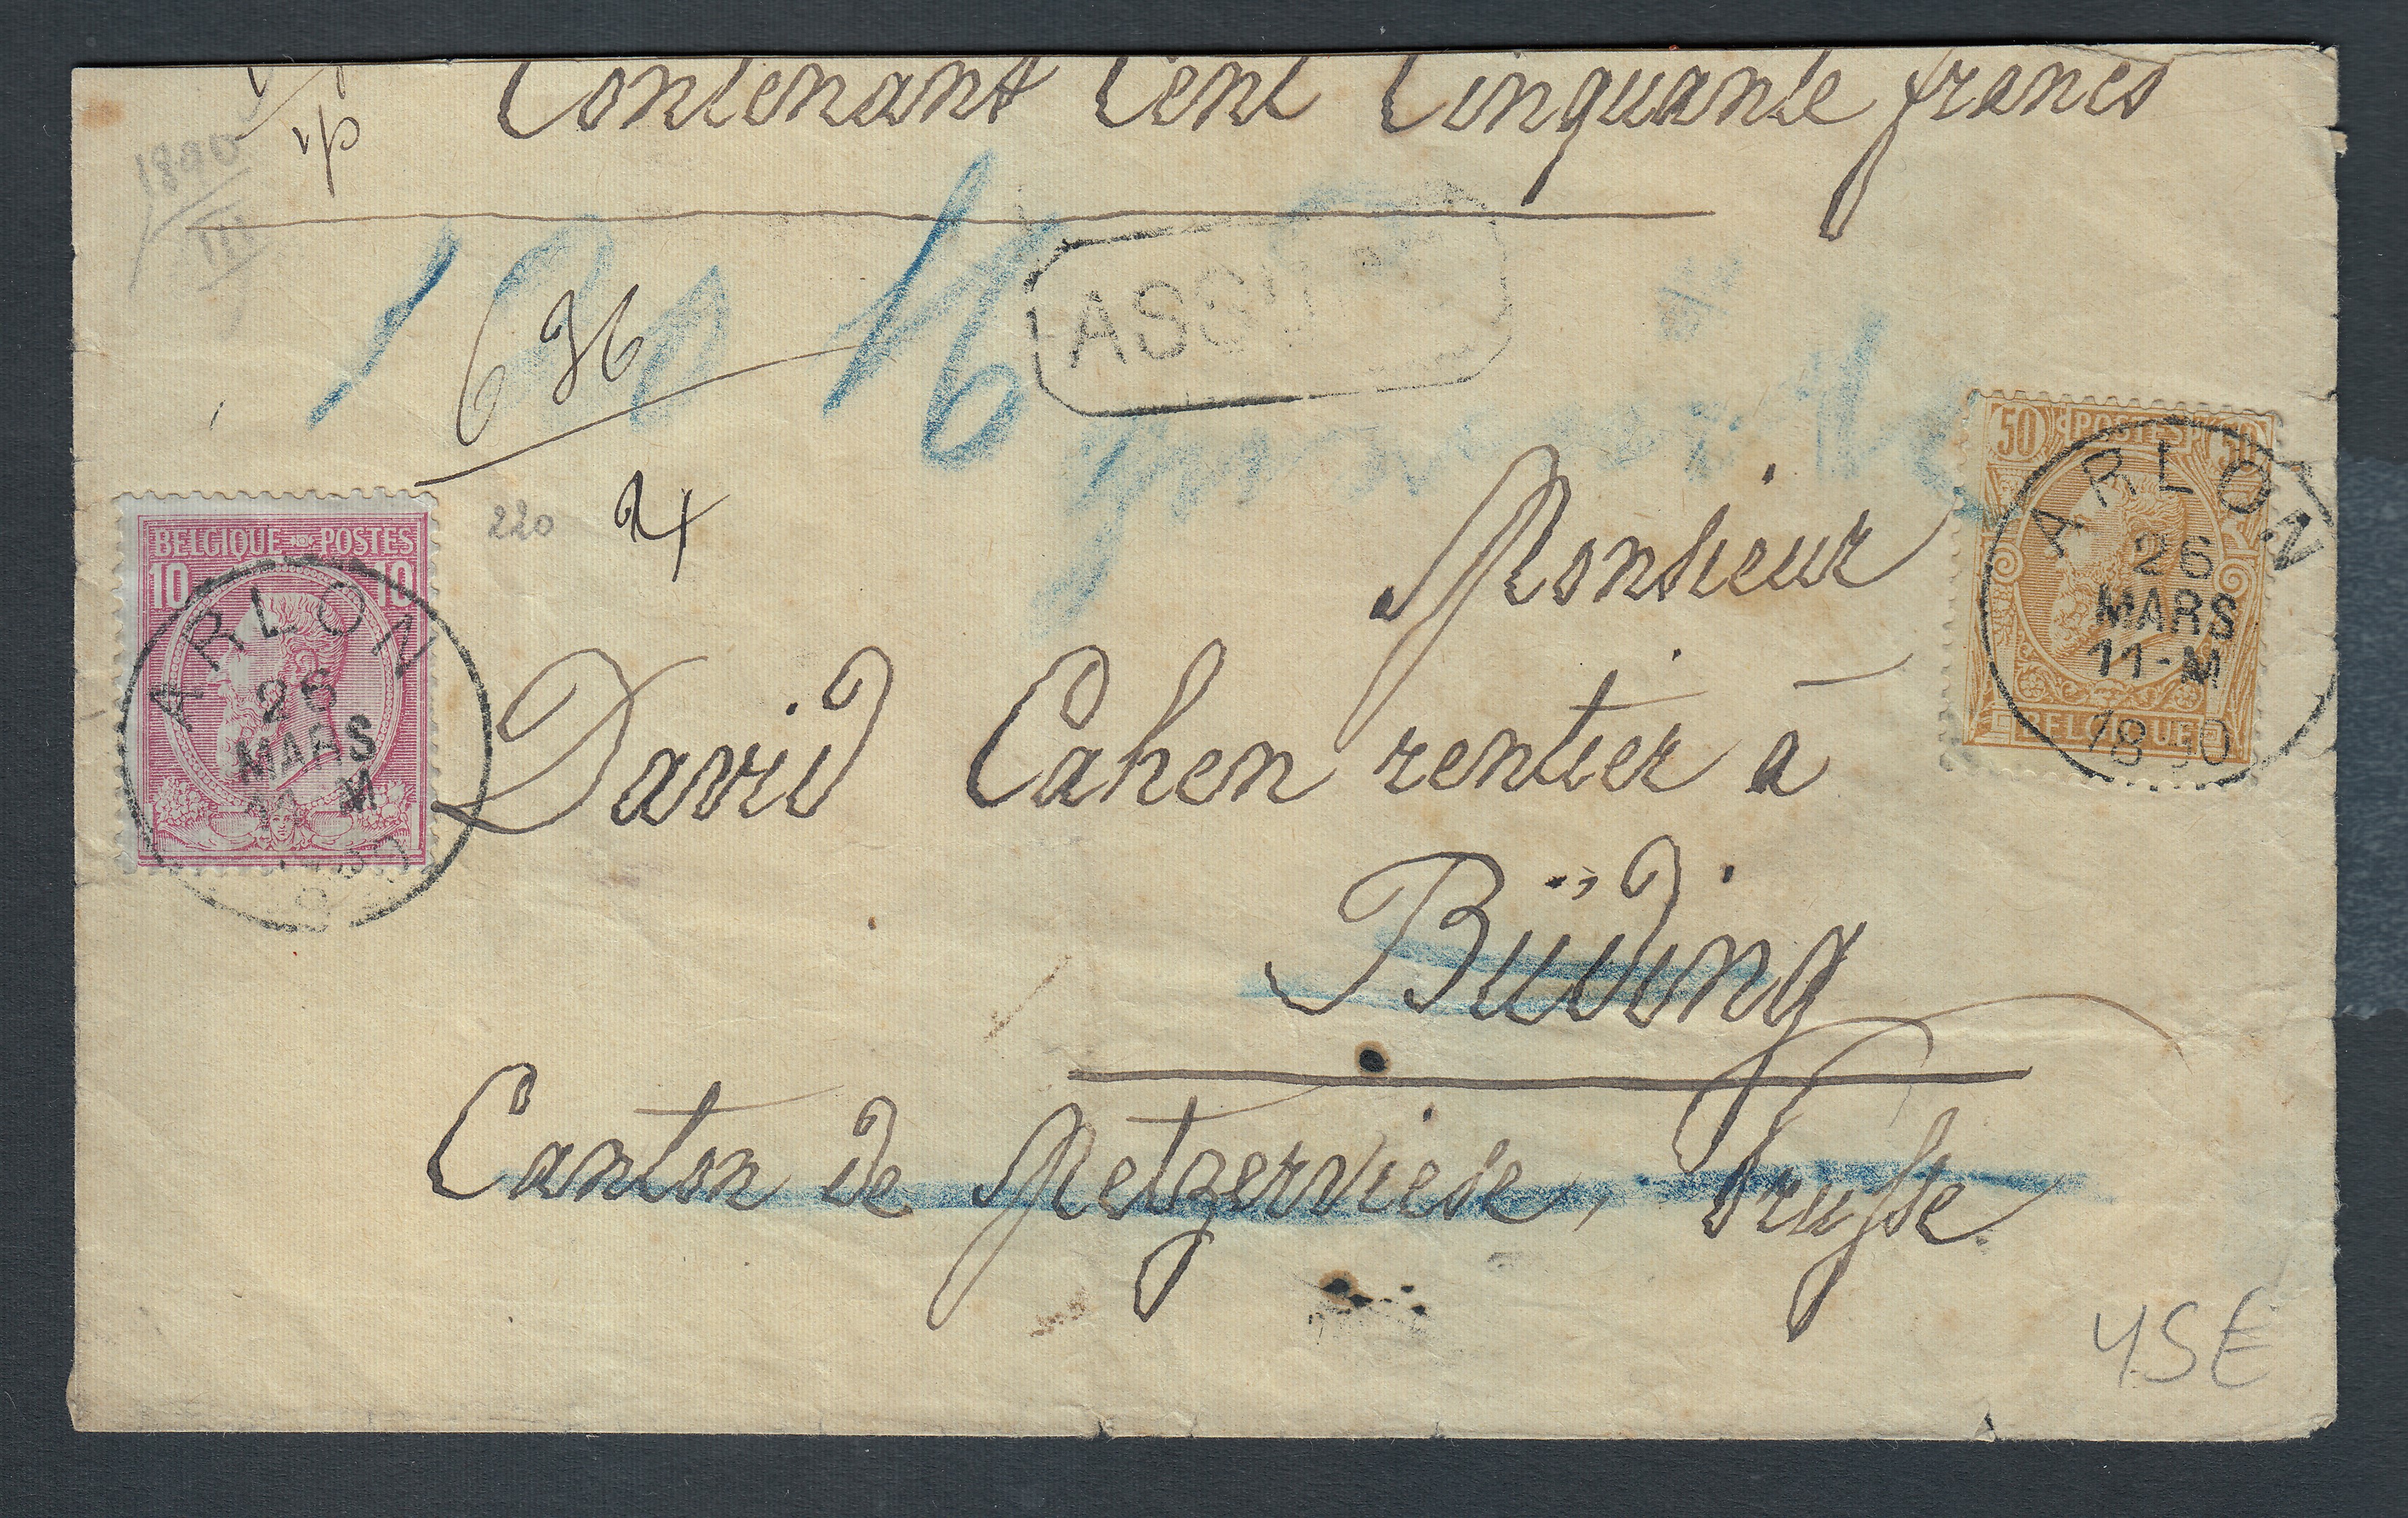 Contenant Cent Cinquante francs
1890
III
120 M
636
220
4
BELGIQUE POSTES
10 10
ARLON
26
MARS
11-M
50 POSTES 50
BELGIQUE
ARLON
26
MARS
11-M
1890
Monsieur
David Cahen rentier à
Büding
Canton de Metzerviese, Prusse.
YSE